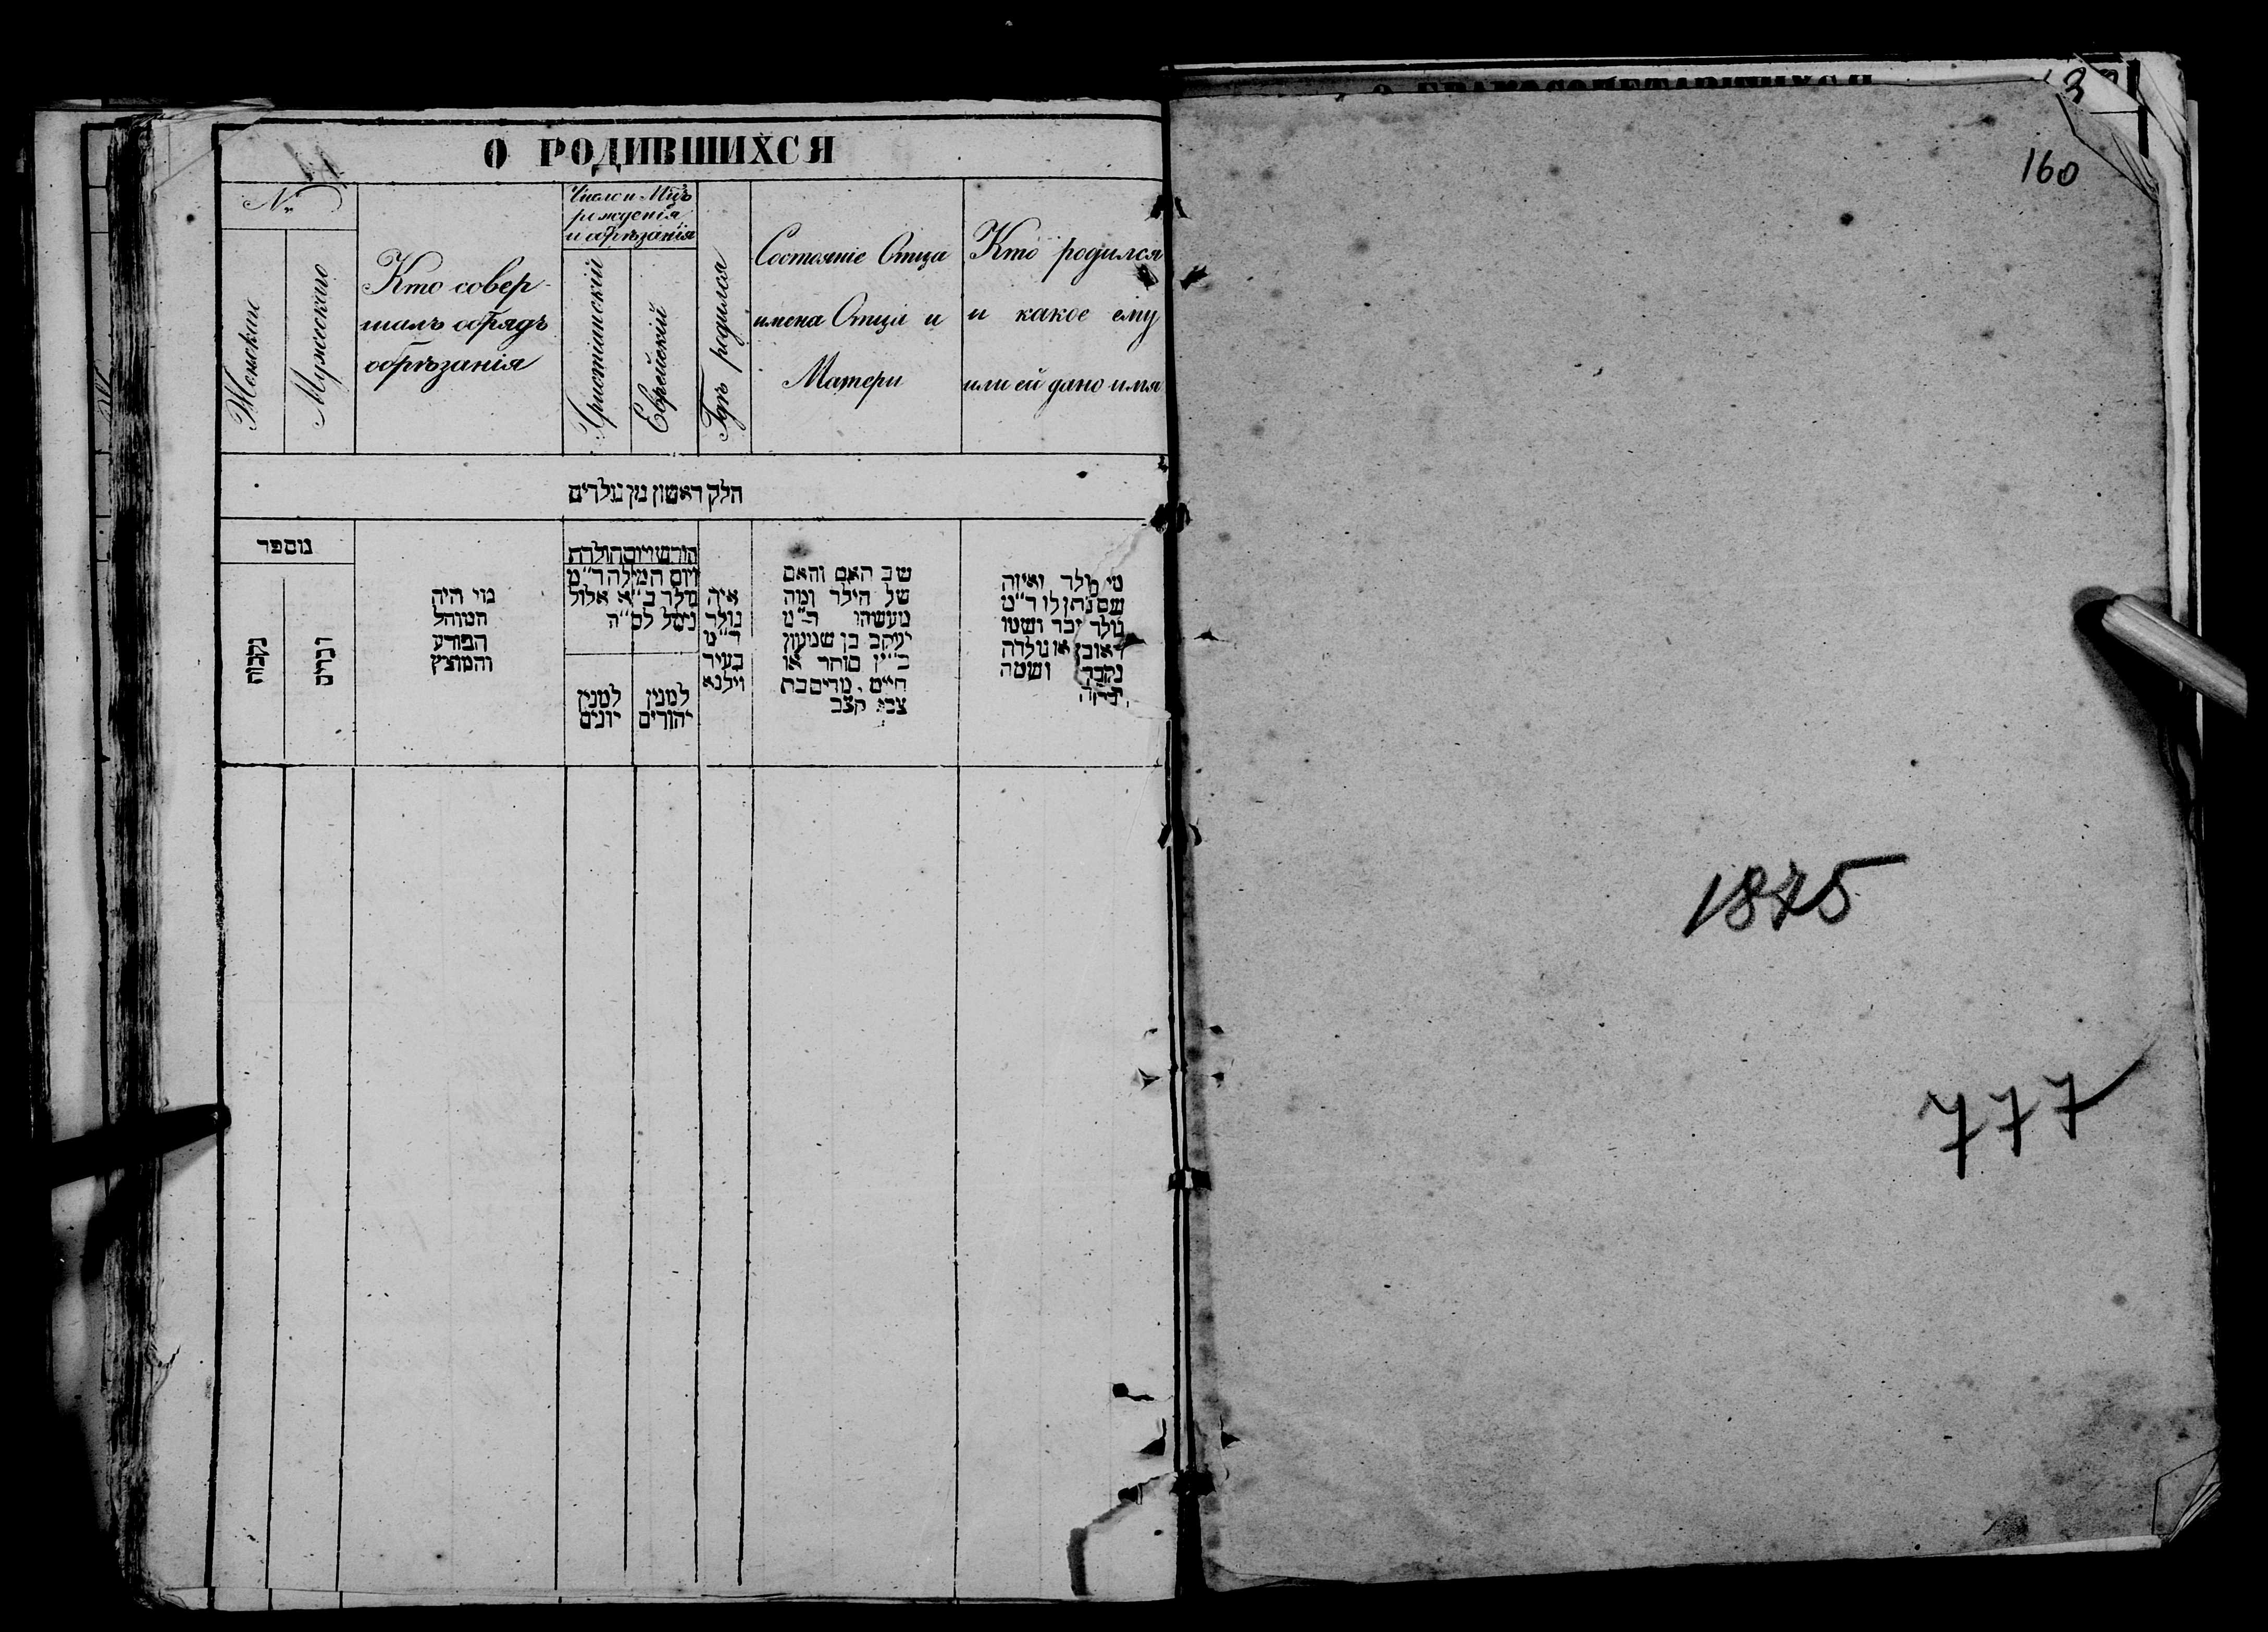 О РОДИВШИХСЯ
№
Женскаго
Мужескаго
Кто совер-
шалъ обрядъ
обрѣзанія
Число и Мцъ
рожденія
и обрѣзанія
Христіанскій
Еврейскій
Гдѣ родился
Состояніе Отца
имена Отца и
Матери
Кто родился
и какое ему
или ей дано имя
חלק ראשון מן נולדים
מספר
נקבות
זכרים
מי היה
המוהל
הפורע
והמוצץ
חודש ויום הולדת
ויום המילה ד״מ
נולד ב״א אלול
נימל לס״ה
למנין
יונים
למנין
יהודים
איה
נולד
ד״מ
בעיר
ווילנא
שם האב והאם
של הילד ומה
מעשיהו ד״מ
יעקב בן שמעון
כ״ץ סוחר או
חייט . מרים בת
צבי קצב
מי נולד ואיזה
שם נתן לו ד״מ
נולד זכר ושמו
ראובן או נולדה
נקבה ושמה
160
1875
777